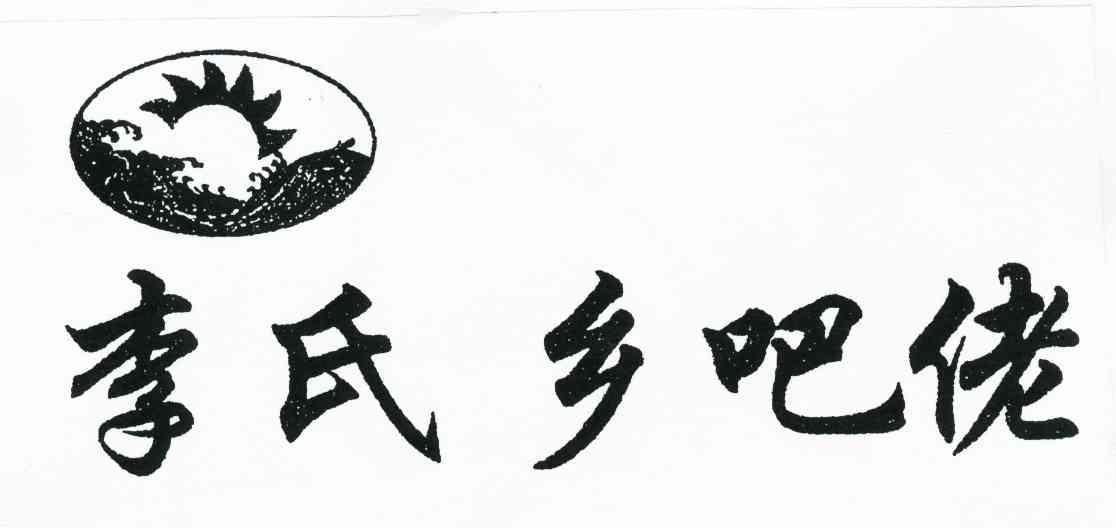 李氏乡吧佬